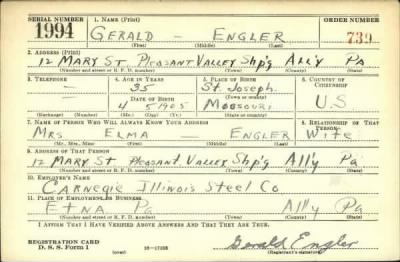 SERIAL NUMBER 1. NAME (Print) ORDER NUMBER
1994 GERALD — ENGLER 739
(First) (Middle) (Last)
2. ADDRESS (Print)
12 MARY ST PLEASANT VALLEY SHP'G ALL'Y PA
(Number and street or R. F. D. number) (Town) (County) (State)
3. TELEPHONE 4. AGE IN YEARS 5. PLACE OF BIRTH 6. COUNTRY OF CITIZENSHIP
— 35 St. Joseph.
DATE OF BIRTH (Town or county)
4 5 1905 MISSOURI U.S
(Exchange) (Number) (Mo.) (Day) (Yr.) (State or country)
7. NAME OF PERSON WHO WILL ALWAYS KNOW YOUR ADDRESS 8. RELATIONSHIP OF THAT PERSON
MRS ELMA — ENGLER WIFE
(Mr., Mrs., Miss) (First) (Middle) (Last)
9. ADDRESS OF THAT PERSON
12 MARY ST PLEASANT VALLEY SHP'G ALL'Y PA
(Number and street or R. F. D. number) (Town) (County) (State)
10. EMPLOYER'S NAME
CARNEGIE ILLINOIS STEEL CO
11. PLACE OF EMPLOYMENT OR BUSINESS
ETNA PA ALL'Y PA
(Number and street or R. F. D. number) (Town) (County) (State)
I AFFIRM THAT I HAVE VERIFIED ABOVE ANSWERS AND THAT THEY ARE TRUE.
REGISTRATION CARD
D. S. S. Form 1 (over) 16—17105 Gerald Engler
(Registrant's signature)